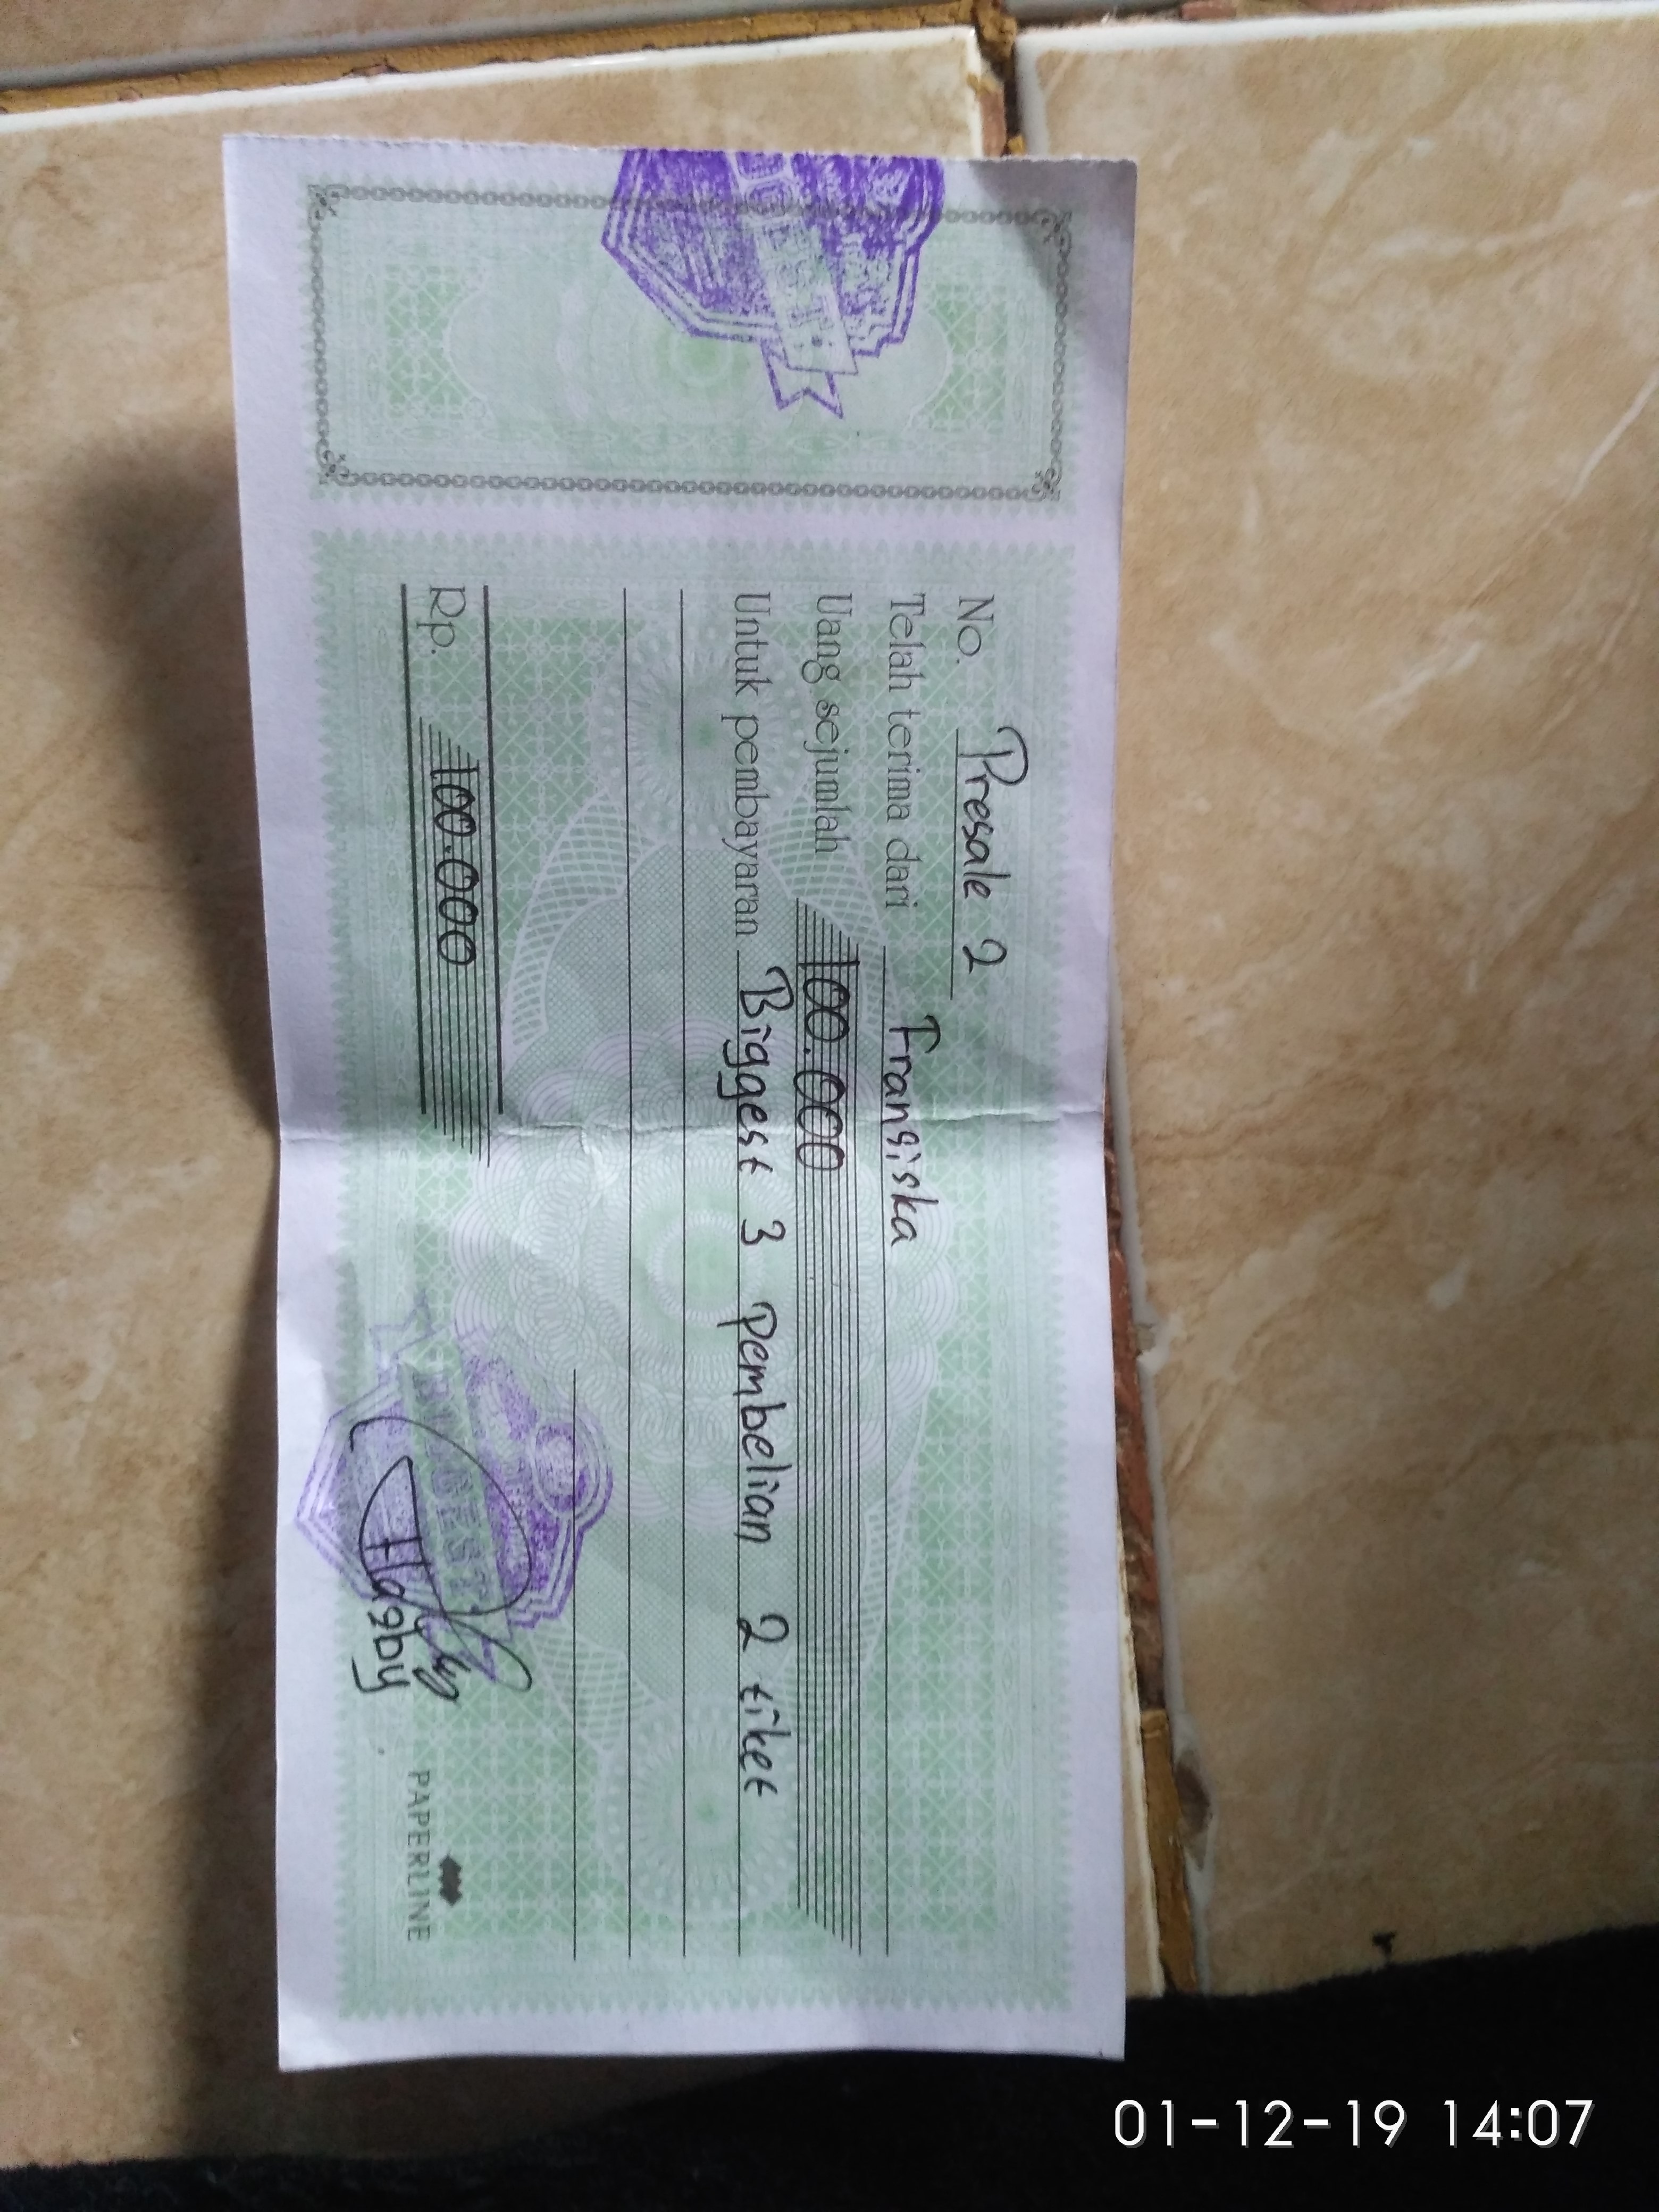 No. Presale 2
Telah terima dari Fransiska
Uang sejumlah 100.000
Untuk pembayaran Biggest 3 pembelian 2 tiket
Rp. 100.000
BIGGEST
Hasby
PAPERLINE
01-12-19 14:07